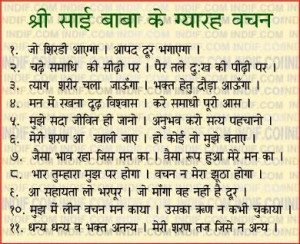 श्री साई बाबा के ग्यारह वचन
१. जो शिरडी आएगा । आपद दूर भगाएगा ।
२. चढ़े समाधि की सीढ़ी पर । पैर तले दुःख की पीढ़ी पर ।
३. त्याग शरीर चला जाऊँगा । भक्त हेतु दौड़ा आऊँगा ।
४. मन में रखना दृढ़ विश्वास । करे समाधी पूरी आस ।
५. मुझे सदा जीवित ही जानो । अनुभव करो सत्य पहचानो ।
६. मेरी शरण आ खाली जाए । हो कोई तो मुझे बताए ।
७. जैसा भाव रहा जिस मन का । वैसा रूप हुआ मेरे मन का ।
८. भार तुम्हारा मुझ पर होगा । वचन न मेरा झूठा होगा ।
९. आ सहायता लो भरपूर । जो माँगा वह नहीं है दूर ।
१०. मुझ में लीन वचन मन काया । उसका ऋण न कभी चुकाया ।
११. धन्य धन्य व भक्त अनन्य । मेरी शरण तज जिसे न अन्य ।